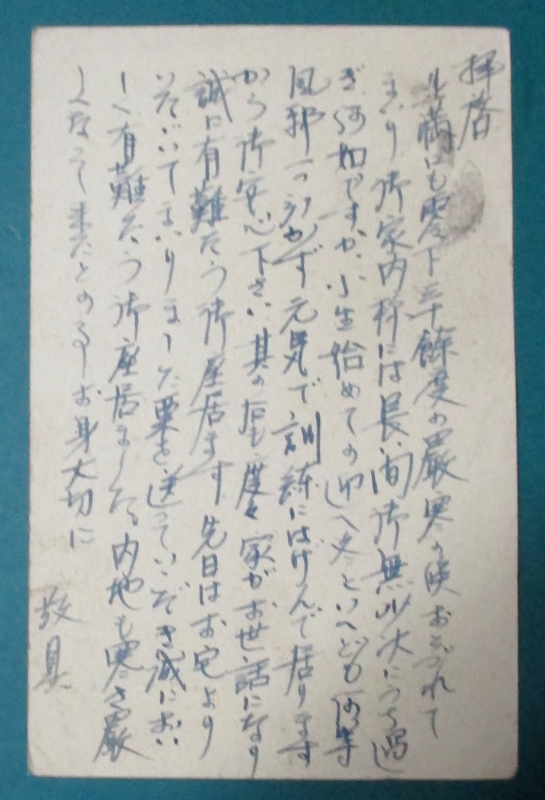 拝啓
北満は零下三十餘度の厳寒の候おとづれて
まゐり 御家内様には長い間御無沙汰にうち過
ぎ 如何ですか、小生始めての迎へ冬といへども 何等
風邪一つ引かず元気で訓練にはげんで居ります
から御安心下さい 其の后も度々家がお世話になり
誠に有難たう御座居ます 先日はお宅より
いただいてまいりました栗を送っていたゞき誠においし
く有難たう御座居ました。内地も寒さ厳
しくなって来たとの事 お身大切に
敬具